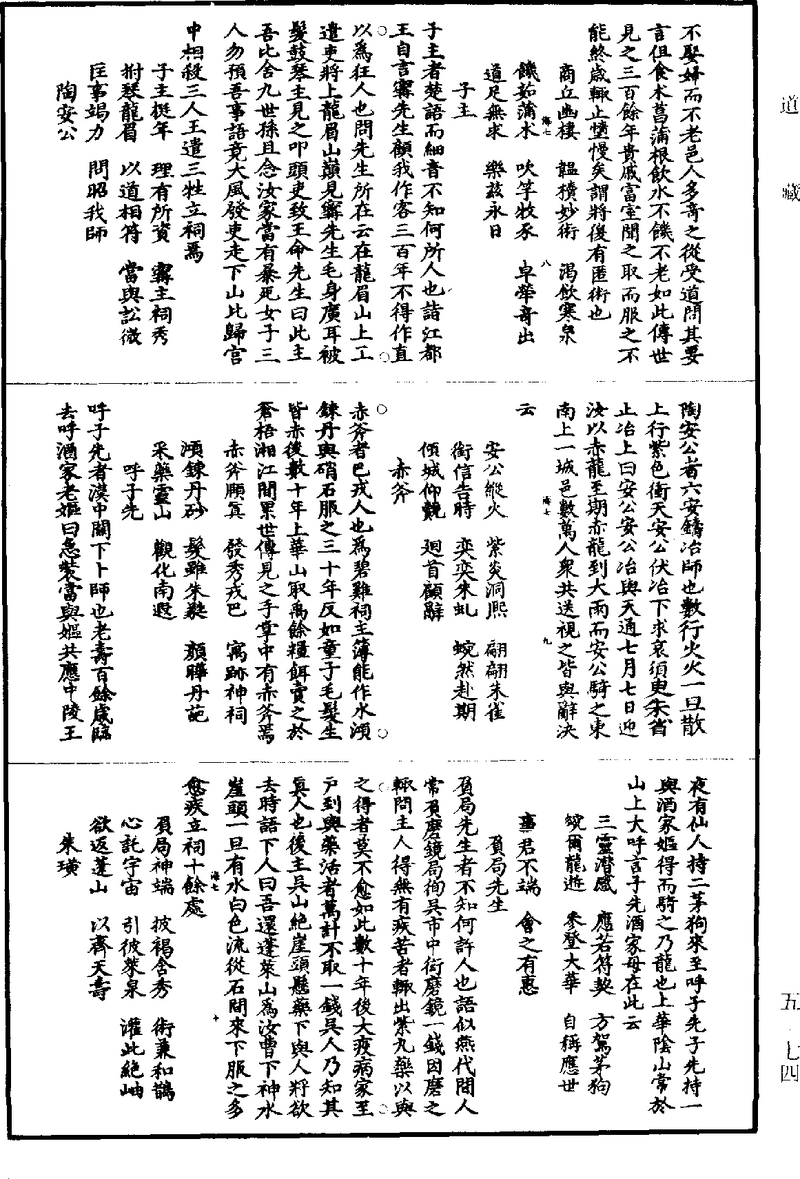 道藏
不娶婦而不老邑人多奇之從受道問其要
言但食朮菖蒲根飲水不饑不老如此傳世
見之三百餘年貴戚富室聞之取而服之不
能終歲輒止墮慢矣謂將復有匿術也
商丘幽棲　韞櫝妙術　渴飲寒泉
饑茹蒲朮　吹竽牧豕　卓犖奇出
道足無求　樂茲永日
子主
子主者楚語而細音不知何所人也詣江都
王自言甯先生顧我作客三百年不得作直
以為狂人也問先生所在云在龍眉山上工
遣吏將上龍眉山巔見甯先生毛身廣耳被
髮鼓琴主見之叩頭吏致王命先生曰此主
吾比舍九世孫且念汝家當有暴死女子三
人勿預吾事語竟大風發吏走下山比歸宮
中相殺三人王遣三牲立祠焉
子主挺年　理有所資　甯主祠秀
拊琴龍眉　以道相符　當與訟微
匡事竭力　問昭我師
陶安公
海七　八
陶安公者六安鑄冶師也數行火火一旦散
上行紫色衝天安公伏冶下求哀須臾朱雀
止冶上曰安公安公冶與天通七月七日迎
汝以赤龍至期赤龍到大雨而安公騎之東
南上一城邑數萬人眾共送視之皆與辭決
云
安公縱火　紫炎洞熙　翩翩朱雀
銜信告時　奕奕朱虬　蜿然赴期
傾城仰覿　迴首顧辭
赤斧
赤斧者巴戎人也為碧雞祠主簿能作水澒
鍊丹與硝石服之三十年反如童子毛髮生
皆赤後數十年上華山取禹餘糧餌賣之於
蒼梧湘江間累世傳見之手掌中有赤斧焉
赤斧頤真　發秀戎巴　寓跡神祠
澒鍊丹砂　髮雖朱蕤　顏曄丹葩
采藥靈山　觀化南遐
呼子先
呼子先者漢中關下卜師也老壽百餘歲臨
去呼酒家老嫗曰急裝當與嫗共應中陵王
海七　九
夜有仙人持二茅狗來至呼子先子先持一
與酒家嫗得而騎之乃龍也上華陰山常於
山上大呼言子先酒家母在此云
三靈潛感　應若符契　方駕茅狗
蜿爾龍遊　參登太華　自稱應世
事君不端　會之有惠
負局先生
負局先生者不知何許人也語似燕代間人
常負磨鏡局徇吳市中衒磨鏡一錢因磨之
輒問主人得無有疾苦者輒出紫丸藥以與
之得者莫不愈如此數十年後大疫病家至
戶到與藥活者萬計不取一錢吳人乃知其
真人也後主吳山絕崖頭懸藥下與人將欲
去時語下人曰吾還蓬萊山為汝曹下神水
崖頭一旦有水白色流從石間來下服之多
愈疾立祠十餘處
負局神端　披褐含秀　術兼和鵲
心託宇宙　引彼萊泉　灌此絕岫
欲返蓬山　以齊天壽
朱璜
海七　十
五　七四